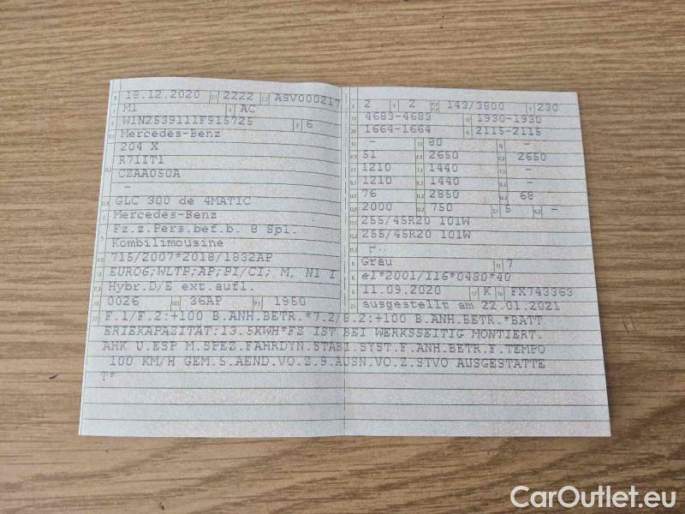 18.12.2020 2222 ASV000217
M1 AC
W1N2539111F915725 6
Mercedes-Benz
204 X
R7IIT1
CZAA050A
-
GLC 300 de 4MATIC
Mercedes-Benz
Fz.z.Pers.bef.b. 8 Spl.
Kombilimousine
715/2007*2018/1832AP
EURO6;WLTP;AP;PI/CI; M, N1 I
Hybr.D/E ext.aufl.
0026 36AP 1950
2 2 143/3800 230
4683-4683 1930-1930
1664-1664 2115-2115
- 80 -
51 2650 2650
1210 1440 -
1210 1440 -
76 2850 68
2000 750 5 -
255/45R20 101W
255/45R20 101W
Grau 7
e1*2001/116*0480*40
11.09.2020 K FX743363
ausgestellt am 22.01.2021
F.1/F.2:+100 B.ANH.BETR.*7.2/8.2:+100 B.ANH.BETR.*BATT
ERIEKAPAZITÄT:13.5KWH*FZ IST BEI WERKSSEITIG MONTIERT.
AHK U.ESP M.SPEZ.FAHRDYN.STABI.SYST.F.ANH.BETR.F.TEMPO
100 KM/H GEM.S.AEND.VO.Z.S.AUSN.VO.Z.STVO AUSGESTATTE
T*
CarOutlet.eu